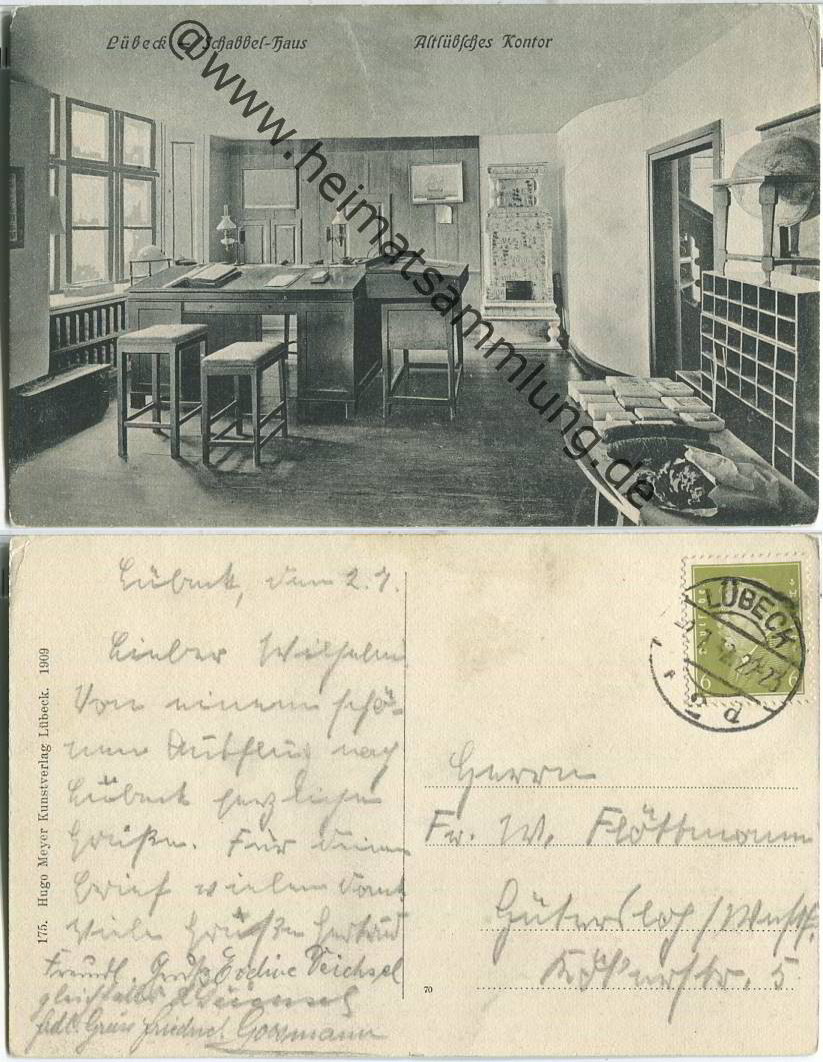 Lübeck Schabbel-Haus
Altlübsches Kontor
@www.heimatsammlung.de
175. Hugo Meyer Kunstverlag Lübeck. 1909
Lübeck, den 2.7.
Lieber Wilhelm
Von einem schö-
nen Ausflug nach
Lübeck herzliche
Grüße. Für deinen
Brief vielen Dank
Viele Grüße
Freundl. Gruß
Friedrich Gossmann
LÜBECK
6
6
d
Herrn
Fr. W. Flöttmann
Gütersloh /Westf.
5
70